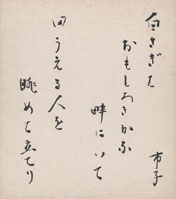 白さぎた
おもしろきかな
畔にいて
田うえる人を
眺めて立てり
市子